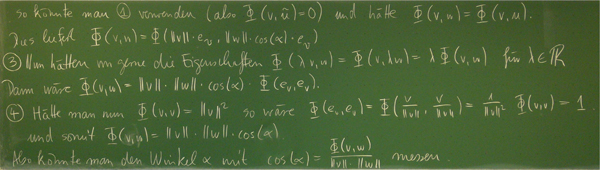 so könnte man ① verwenden (also Φ(v,ũ)=0) und hätte Φ(v,w) = Φ(v,u).
Dies liefert Φ(v,w) = Φ(‖v‖·e_v, ‖w‖·cos(α)·e_v)
③ Nun hätten wir gerne die Eigenschaften Φ(λv,w) = Φ(v,λw) = λΦ(v,w) für λ∈ℝ
Dann wäre Φ(v,w) = ‖v‖·‖w‖·cos(α)·Φ(e_v,e_v).
④ Hätte man nun Φ(v,v) = ‖v‖² so wäre Φ(e_v,e_v) = Φ(v/‖v‖, v/‖v‖) = 1/‖v‖² Φ(v,v) = 1
und somit Φ(v,w) = ‖v‖·‖w‖·cos(α).
Also könnte man den Winkel α mit cos(α) = Φ(v,w)/‖v‖·‖w‖ messen.